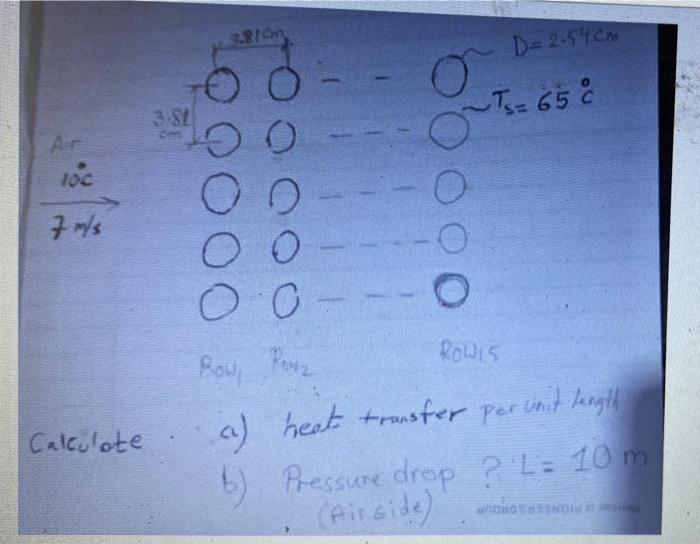 3.81cm
D= 2.54 cm
Ts= 65 °C
3.81
cm
Air
10°C
7 m/s
Row1 Row2
ROW15
Calculate a) heat transfer per unit length
b) Pressure drop ? L= 10 m
(Air side)